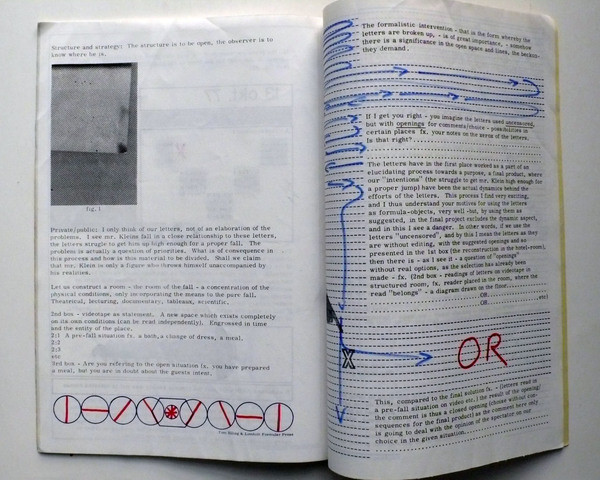 Structure and strategy: The structure is to be open, the observer is to
know where he is.
fig. 1
Private/public: I only think of our letters, not of an elaboration of the
problems. I see mr. Kleins fall in a close relationship to these letters,
the letters strugle to get him up high enough for a proper fall. The
problem is actually a question of priorities. What is of consequence in
this process and how is this material to be divided. Shall we claim
that mr. Klein is only a figure who throws himself unaccompanied by
his realities.
Let us construct a room - the room of the fall - a concentration of the
physical conditions, only incorporating the means to the pure fall.
Theatrical, lecturing, documentary, tableaux, scientific.
2nd box - videotape as statement. A new space which exists completely
on its own conditions (can be read independently). Engrossed in time
and the entity of the place.
2:1 A pre-fall situation fx. a bath, a change of dress, a meal.
2:2
2:3
etc
3rd box - Are you refering to the open situation fx. you have prepared
a meal, but you are in doubt about the guests intent.
The formalistic intervention - that is the form whereby the
letters are broken up, - is of great importance, - somehow
there is a significance in the open space and lines, the
they demand.
If I get you right - you imagine the letters uncensored,
but with openings for comments/choice - possibilities in
certain places fx. your notes on the xerox of the letters.
Is that right?
The letters have in the first place worked as a part of an
elucidating process towards a purpose, a final product, where
our "intentions" (the struggle to get mr. Klein high enough for
a proper jump) have been the actual dynamics behind the
efforts of the letters. This process I find very exciting,
and I thus understand your motives for using the letters
as formula-objects, very well - but, by using them as
suggested, in the final project excludes the dynamic aspect,
and in this I see a danger. In other words, if we see the
letters "uncensored", and by this I mean the letters as they
are without editing, with the suggested openings and so
presented in the 1st box (the reconstruction in the hotel-room),
then there is - as I see it - a question of "openings"
without real options, as the selection has already been
made - fx. (2nd box - readings of letters on videotape in
structured room, fx. reader placed in room, where the
read "belongs" - a diagram drawn in the floor
OR
OR etc)
X
OR
This, compared to the final solution fx. - (letters read if
a pre-fall situation on video etc.) the result of the opening/
the comment is thus a closed opening (choise without con-
sequences for the final product) as the comment here only
is going to deal with the opinion of the spectator on our
choice in the given situation.